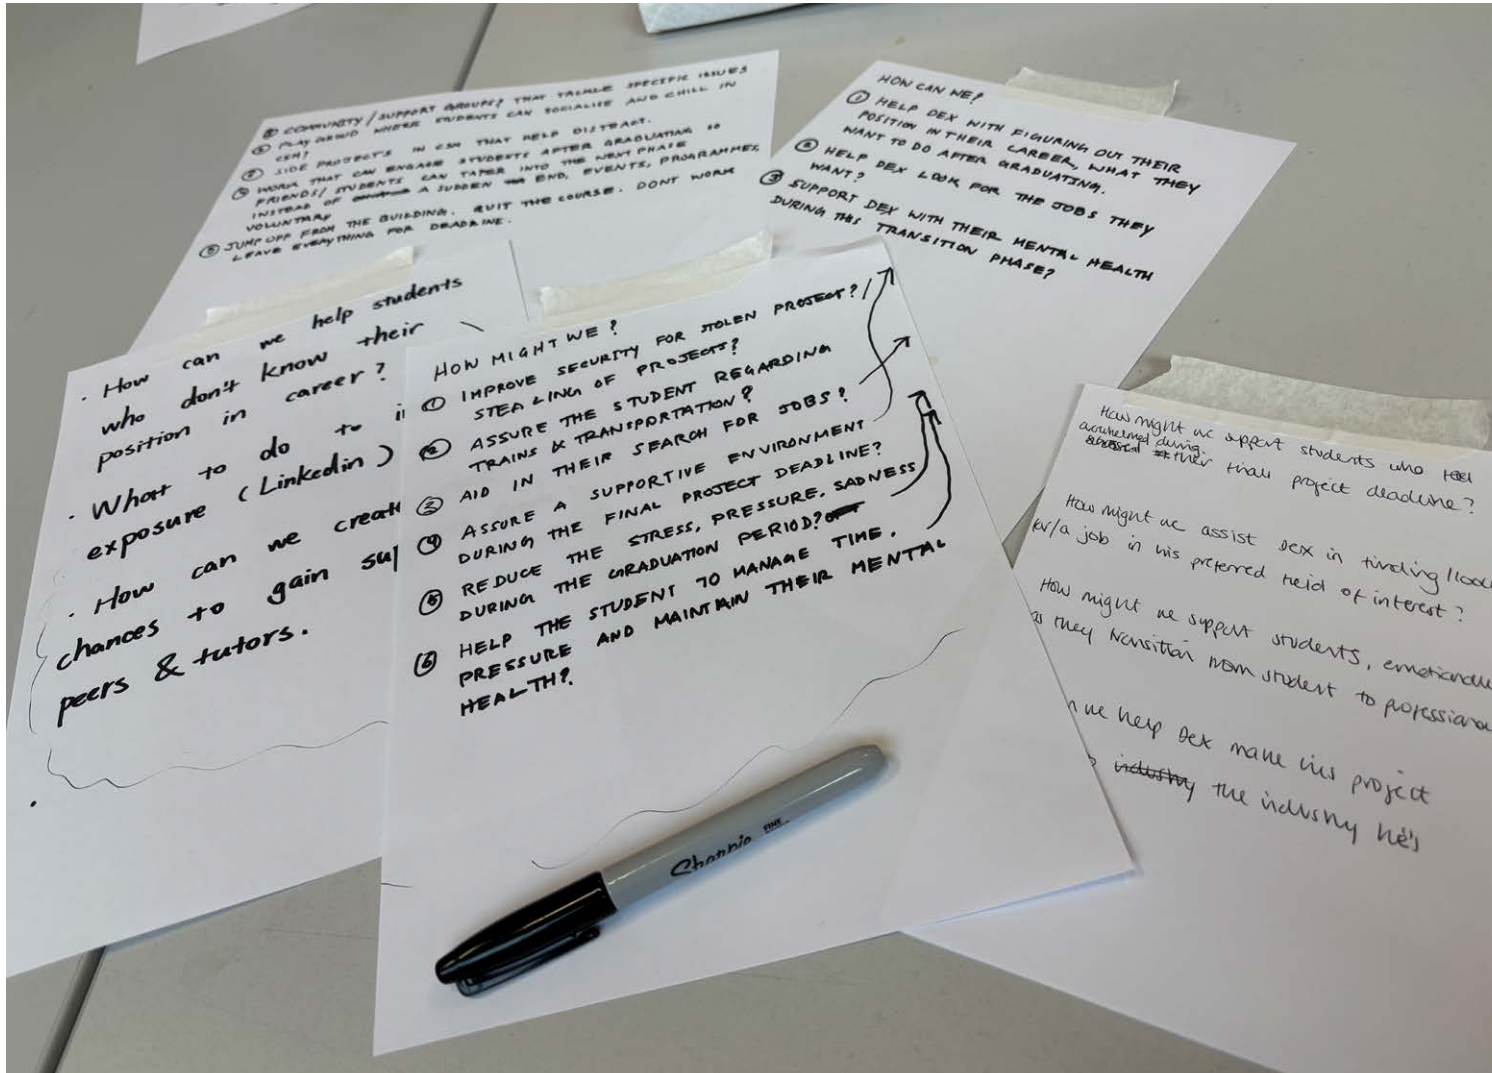 ① COMMUNITY / SUPPORT GROUPS? THAT TACKLE SPECIFIC ISSUES
② PLAY GROUND WHERE STUDENTS CAN SOCIALISE AND CHILL IN
CSM?
SIDE PROJECTS IN CSM THAT HELP DISTRACT.
WORK THAT CAN ENGAGE STUDENTS AFTER GRADUATING SO
FRIENDS / STUDENTS CAN TAPER INTO THE NEXT PHASE
INSTEAD OF A SUDDEN END. EVENTS, PROGRAMMES,
VOLUNTARY
⑤ JUMP OFF FROM THE BUILDING. QUIT THE COURSE. DONT WORK
LEAVE EVERYTHING FOR DEADLINE.
HOW CAN WE?
① HELP DEX WITH FIGURING OUT THEIR
POSITION IN THEIR CAREER, WHAT THEY
WANT TO DO AFTER GRADUATING.
② HELP DEX LOOK FOR THE JOBS THEY
WANT?
③ SUPPORT DEX WITH THEIR MENTAL HEALTH
DURING THIS TRANSITION PHASE?
· How can we help students
who don't know their
position in career?
· What to do to
exposure (Linkedin)
· How can we
chances to gain
peers & tutors.
HOW MIGHT WE?
① IMPROVE SECURITY FOR STOLEN PROJECT? /
STEALING OF PROJECTS?
② ASSURE THE STUDENT REGARDING
TRAINS & TRANSPORTATION?
③ AID IN THEIR SEARCH FOR JOBS?
④ ASSURE A SUPPORTIVE ENVIRONMENT
DURING THE FINAL PROJECT DEADLINE?
⑤ REDUCE THE STRESS, PRESSURE, SADNESS
DURING THE GRADUATION PERIOD?
⑥ HELP THE STUDENT TO MANAGE TIME,
PRESSURE AND MAINTAIN THEIR MENTAL
HEALTH?
How might we support students who feel
overwhelmed during
their final project deadline?
How might we assist Dex in finding/
for/a job in his preferred field of interest?
How might we support students,
as they transition from student to
we help Dex make his project
industry the industry he's
Sharpie FINE